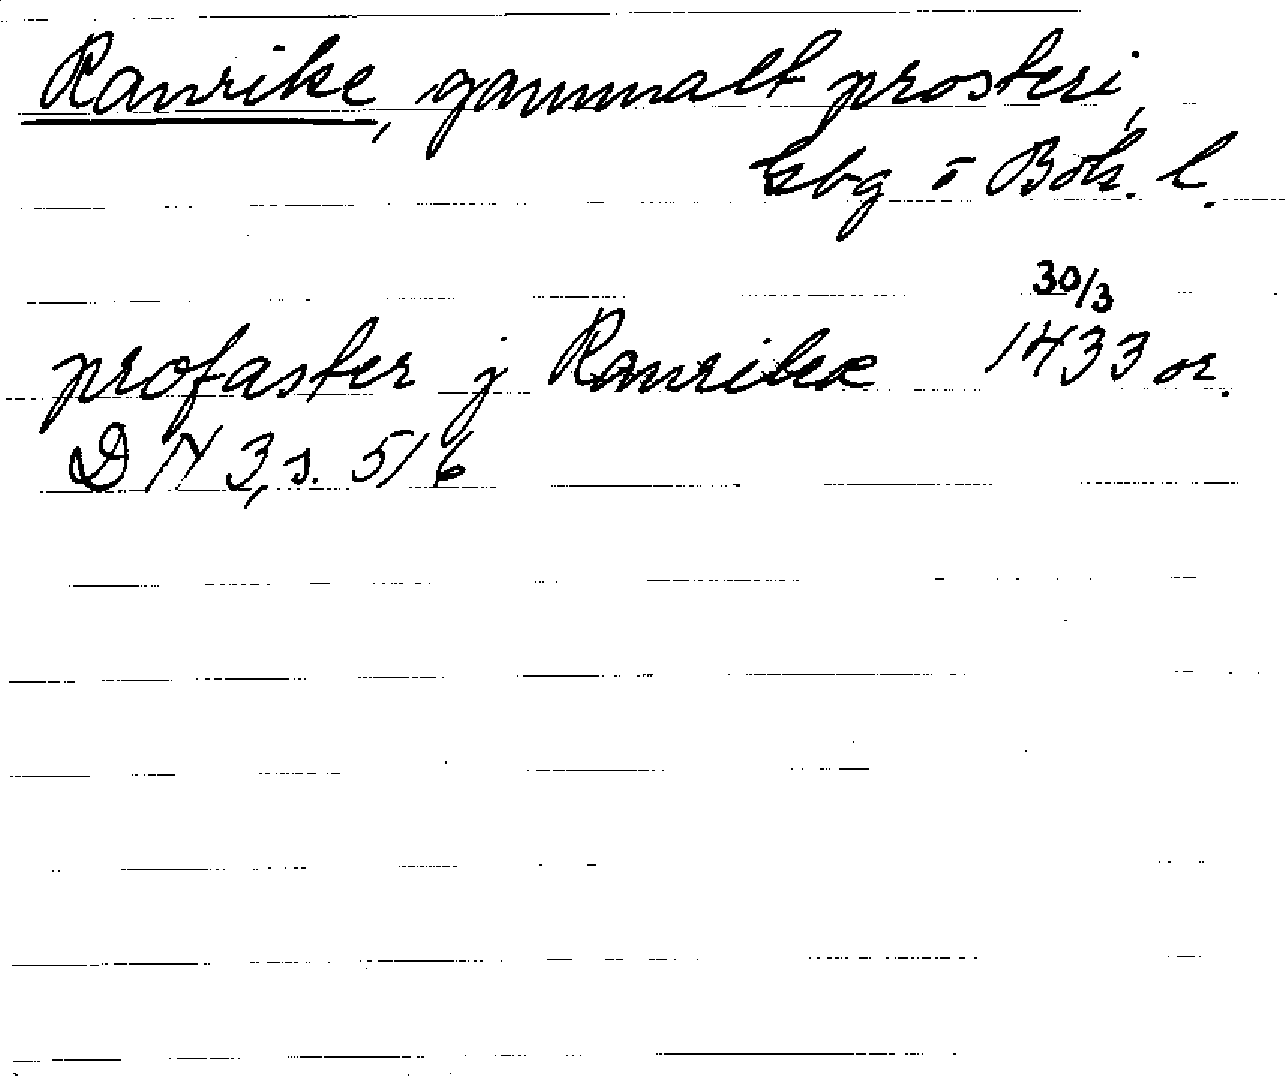 Ranrike, gammalt prosteri,
Gbg o Boh. l.
profaster j Ranrikæ 30/3 1433 or.
D 14 3, s. 516